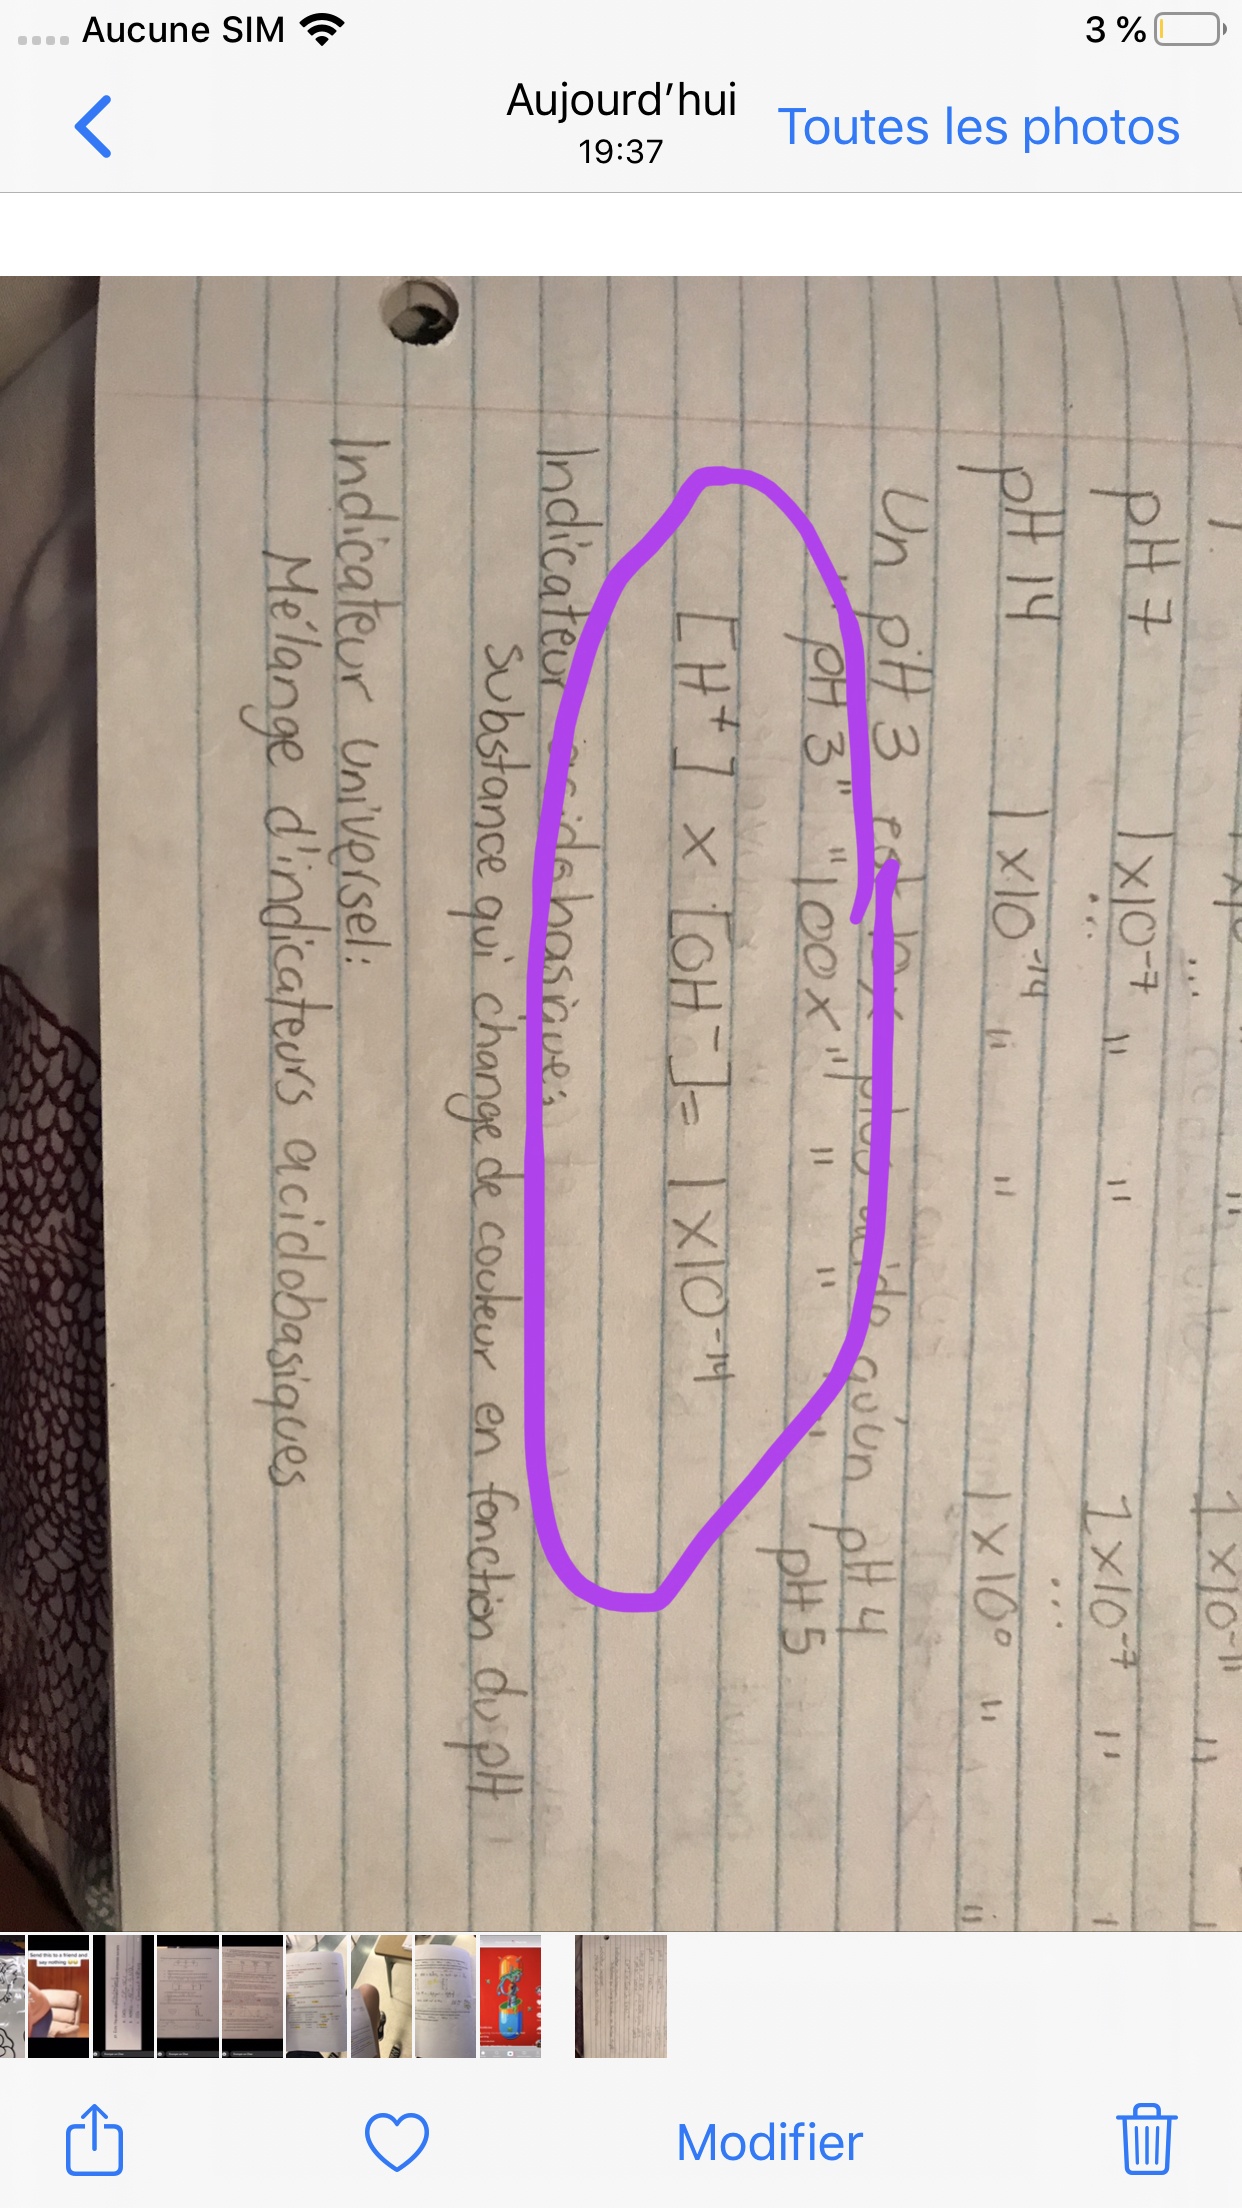 Aucune SIM
3 %
Aujourd'hui
19:37
Toutes les photos
1 x10⁻¹¹ "
pH 7 1 x10⁻⁷ " " 1 x10⁻⁷ "
... ...
pH 14 1 x10⁻¹⁴ " " 1 x10⁰ " "
Un pH 3 est 10 x plus acide qu'un pH 4
" pH 3 " " 100 x " " " " pH 5
[H⁺] x [OH⁻] = 1 x10⁻¹⁴
Indicateur acidobasique:
substance qui change de couleur en fonction du pH
Indicateur universel:
Mélange d'indicateurs acidobasiques
Send this to a friend and
say nothing
Modifier